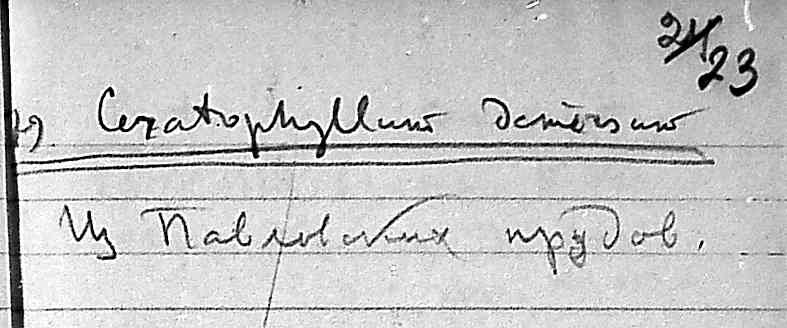 24
23
Ceratophyllum demersum
Из Павловских прудов.